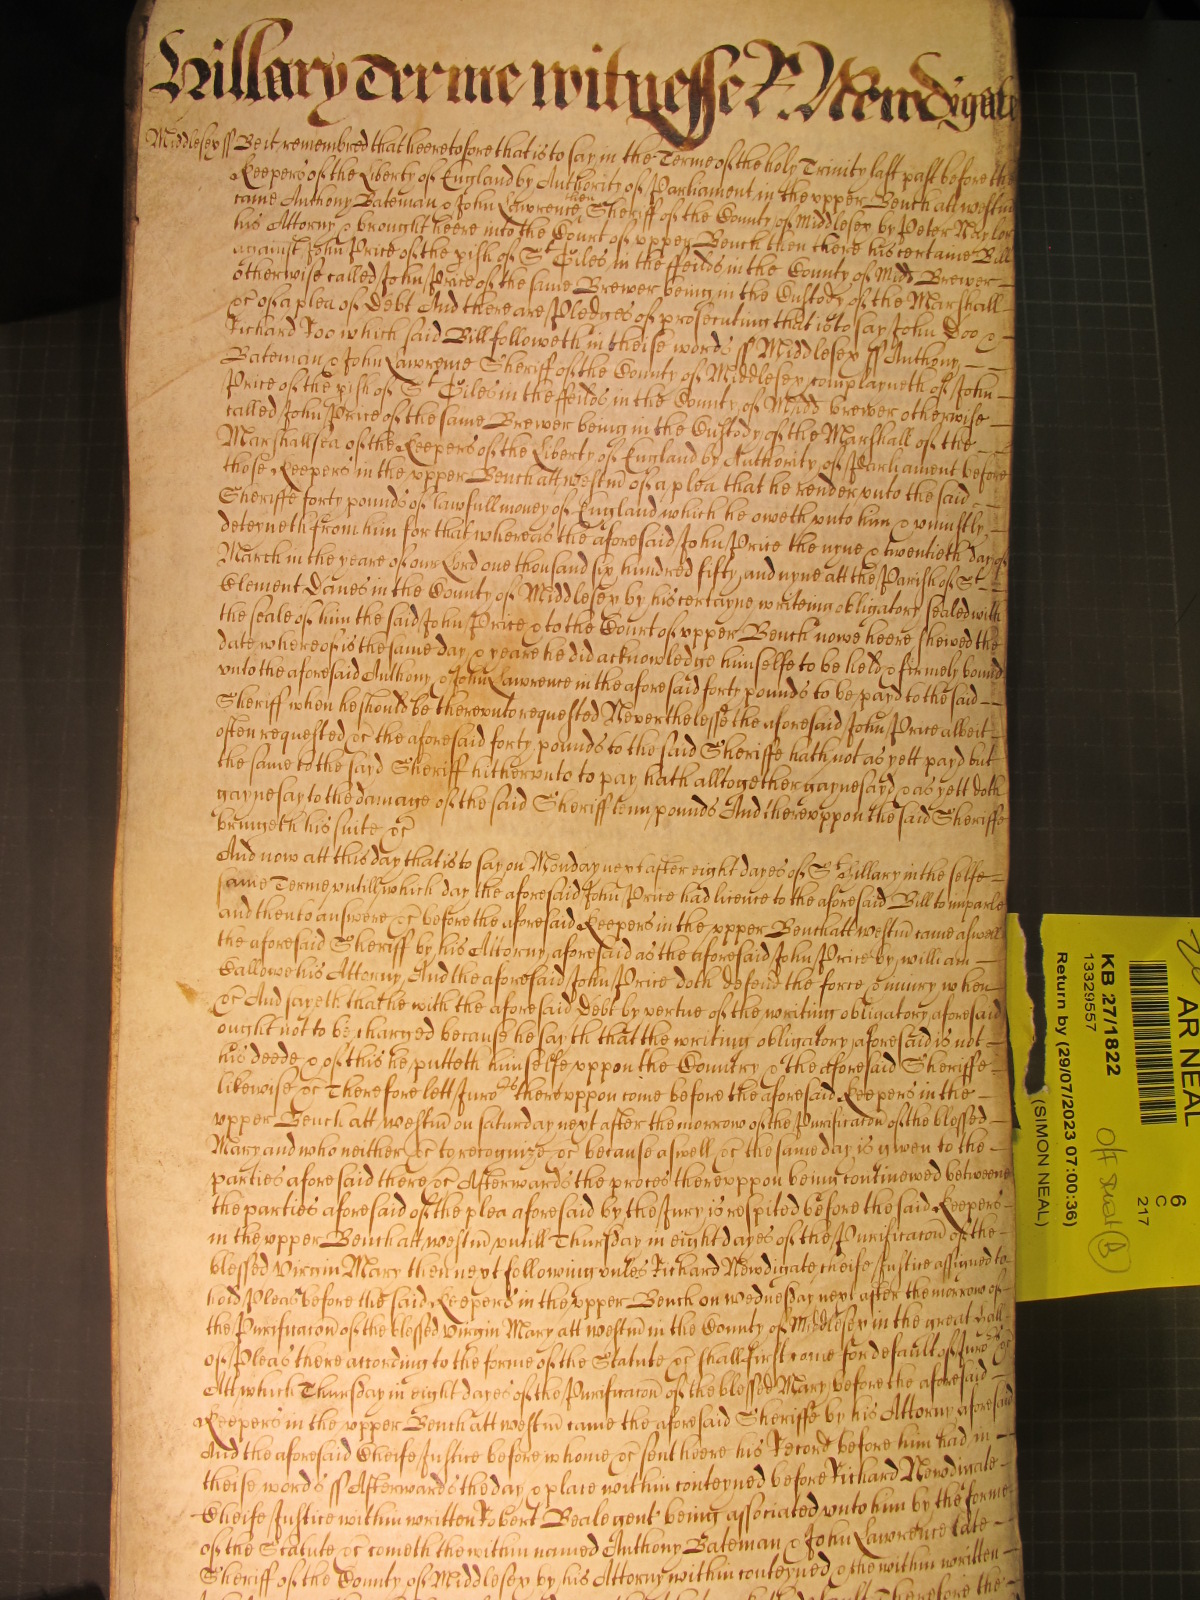 Hillary Terme witnesse R. Newdigate
Middlesex ss Be it remembred that heeretofore that is to say in the Terme of the holy Trinity last past before the
Keepers of the Liberty of England by Authority of Parliament in the upper Bench att Westm
came Anthony Bateman & John Lawrence then Sheriff of the County of Middlesex by Peter Naylor
his Attorny & brought heere into the Court of upper Bench then there his certaine Bill
against John Price of the pish of St Giles in the ffeilds in the County of Midd Brewer
otherwise called John Price of the same Brewer being in the Custody of the Marshall
&c of a plea of Debt And there are Pledges of prosecuting that is to say John Doo &
Richard Roo which said Bill followeth in theise words ss Middlesex ss Anthony
Bateman & John Lawrence Sheriff of the County of Middlesex complayneth of John
Price of the pish of St Giles in the ffeilds in the County of Midd brewer otherwise
called John Price of the same Brewer being in the Custody of the Marshall of the
Marshallsea of the Keepers of the Liberty of England by Authority of Parliament before
those Keepers in the upper Bench att Westm of a plea that he render unto the said
Sheriffe forty pounds of lawfull money of England which he oweth unto him & uniustly
deteyneth from him for that whereas the aforesaid John Price the nyne & twentieth day of
March in the yeare of our Lord one thousand six hundred fifty and nyne att the Parish of St
Clement Danes in the County of Middlesex by his certayne writeing obligatory sealed with
the seale of him the said John Price & to the Court of upper Bench nowe heere shewed the
date whereof is the same day & yeare he did acknowledge himselfe to be held & firmely bound
unto the aforesaid Anthony & John Lawrence in the aforesaid forty pounds to be payd to the said
Sheriff when he should be thereunto requested Neverthelesse the aforesaid John Price albeit
often requested &c the aforesaid forty pounds to the said Sheriffe hath not as yett payd but
the same to the sayd Sheriff hitherunto to pay hath alltogether gaynesayd & as yett doth
gaynesay to the damage of the said Sheriff tenn pounds And thereuppon the said Sheriffe
bringeth his suite &c
And now att this day that is to say on Monday next after eight dayes of St Hillary in the selfe
same Terme untill which day the aforesaid John Price had licence to the aforesaid Bill to imparle
and then to answere &c before the aforesaid Keepers in the upper Bench att Westm came aswell
the aforesaid Sheriff by his Attorny aforesaid as the aforesaid John Price by william
Callowe his Attorny And the aforesaid John Price doth defend the force & iniury when
&c And sayeth that he with the aforesaid Debt by vertue of the writing obligatory aforesaid
ought not to be charged because he sayth that the writing obligatory aforesaid is not
his deede & of this he putteth himselfe uppon the Country & the aforesaid Sheriffe
likewise &c Therefore lett Juro rs thereuppon come before the aforesaid Keepers in the
upper Bench att westm on saturday next after the morrow of the Purificacon of the blessed
Mary and who neither &c to recognize &c because aswell &c the same day is given to the
parties aforesaid there &c Afterwards the proces thereuppon being continewed betweene
the parties aforesaid of the plea aforesaid by the Jury is respited before the said Keepers
in the upper Bench att westm untill Thursday in eight dayes of the Purificacon of the
blessed virgin Mary then next following unles Richard Newdigate cheife Justice assigned to
hold Pleas before the said Keepers in the upper Bench on wednesday next after the morrow of
the Purificacon of the blessed virgin Mary att westm in the County of Middlesex in the great hall
of Pleas there according to the forme of the Statute &c shall first come for default of Juro rs &c
Att which Thursday in eight dayes of the Purificacon of the blessed Mary before the aforesaid
Keepers in the upper Bench att westm came the aforesaid Sheriffe by his Attorny aforesaid
And the aforesaid Cheife Justice before whome &c sent heere his Record before him had in
theise words ss Afterwards the day & place within conteyned before Richard Newdigate
Cheife Justice within written Robert Beale gent being associated unto him by the forme
of the Statute &c cometh the within named Anthony Bateman & John Lawrence late
Sheriff of the County of Middlesex by his Attorny within conteyned & the within written
Therefore the
AR NEAL
6
C
217
KB 27/1822
13329557
Return by (29/07/2023 07:00:36)
(SIMON NEAL)